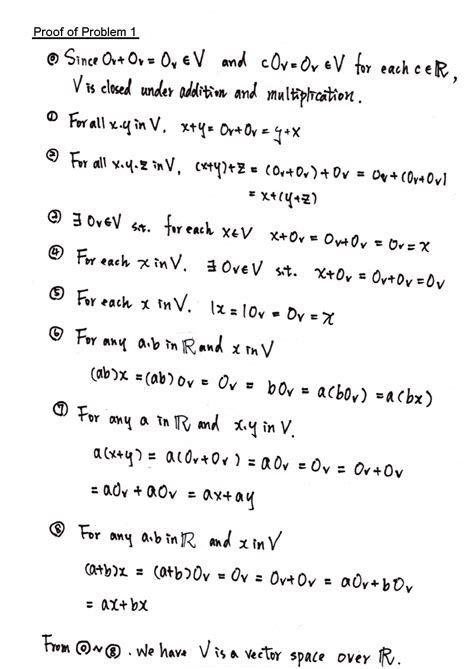 Proof of Problem 1
⓪ Since 0v+0v=0v∈V and c0v=0v∈V for each c∈ℝ,
V is closed under addition and multiplication.
① For all x.y in V, x+y= 0v+0v = y+x
② For all x.y.z in V, (x+y)+z = (0v+0v)+0v = 0v+(0v+0v)
= x+(y+z)
③ ∃ 0v∈V s.t. for each x∈V x+0v = 0v+0v = 0v = x
④ For each x in V. ∃ 0v∈V s.t. x+0v = 0v+0v = 0v
⑤ For each x in V. 1x = 10v = 0v = x
⑥ For any a.b in ℝ and x in V
(ab)x = (ab)0v = 0v = b0v = a(b0v) = a(bx)
⑦ For any a in ℝ and x.y in V.
a(x+y) = a(0v+0v) = a0v = 0v = 0v+0v
= a0v + a0v = ax+ay
⑧ For any a.b in ℝ and x in V
(a+b)x = (a+b)0v = 0v = 0v+0v = a0v+b0v
= ax+bx
From ⓪~⑧. we have V is a vector space over ℝ.